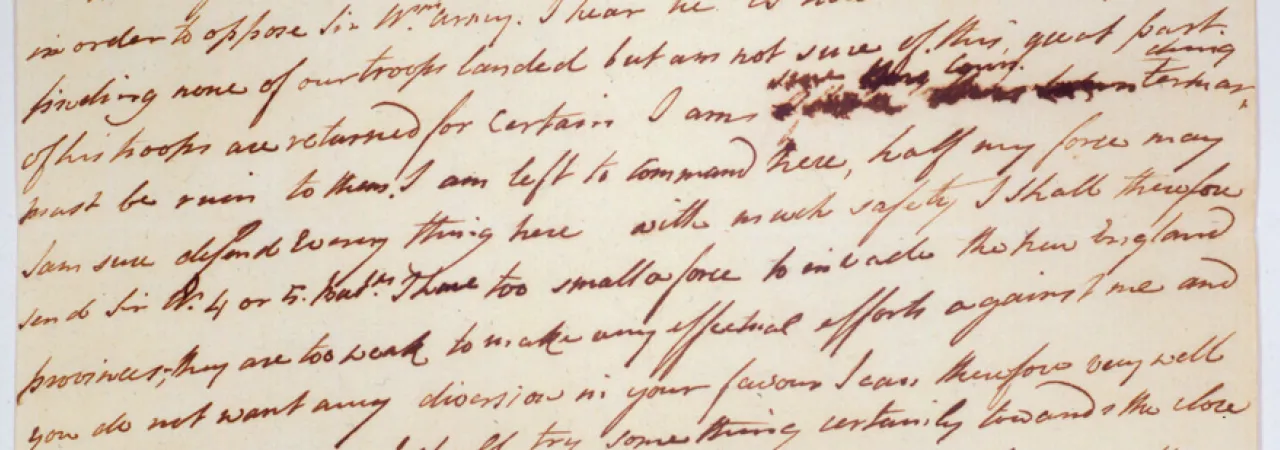 in order to oppose Sir Wm's army. I hear he is now
finding none of our troops landed but am not sure of this, great part
of his troops are returned for certain I am sure this coun
ding
termar
must be ruin to them. I am left to command here, half my force may
I am sure defend Every thing here with much safety I shall therefore
send Sir W. 4 or 5. Batns I have too small a force to invade the new England
provinces; they are too weak to make any effectual efforts against me and
you do not want any diversion in your favour I can therefore very well
try something certainly towards the close